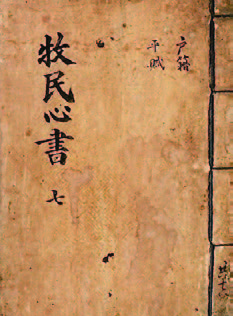 戶籍
平賦
牧民心書 七